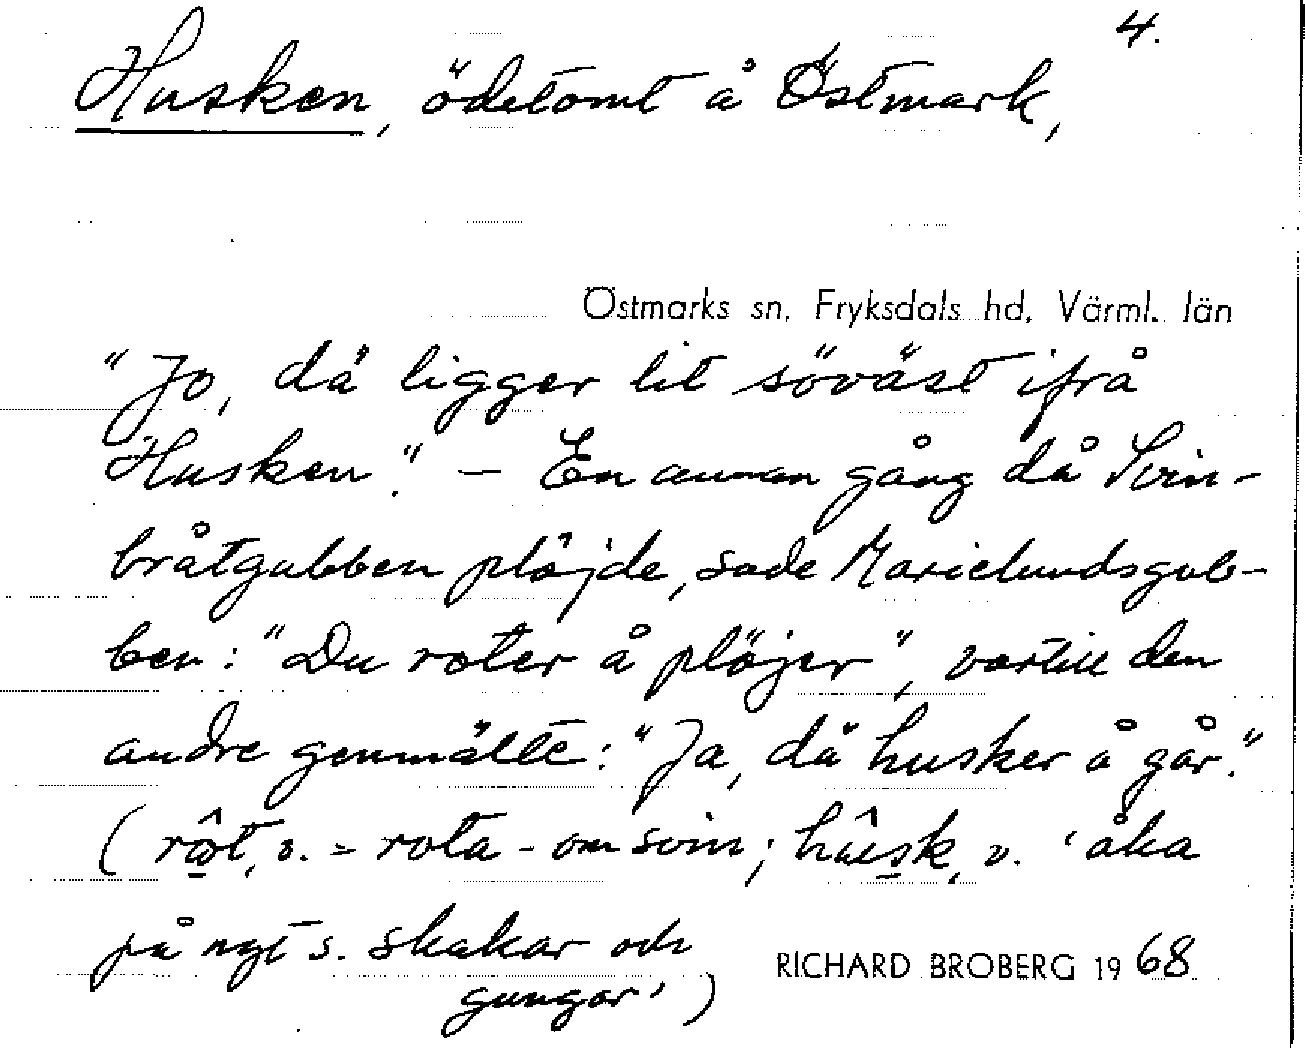 4.
Husken, ödetomt å Östmark,
Östmarks sn, Fryksdals hd, Värml. län
"Jo, dä ligger lit söväst ifrå
Husken." – En annan gång då Svin-
bråtgubben plöjde, sade Marielundsgub-
ben: "Du roter å plöjer", vartill den
andre genmälte: "Ja, dä husker å går."
( rôt, v. = rota - om svin; hûsk, v. 'åka
på ngt s. skakar och
gungar' )
RICHARD BROBERG 19 68